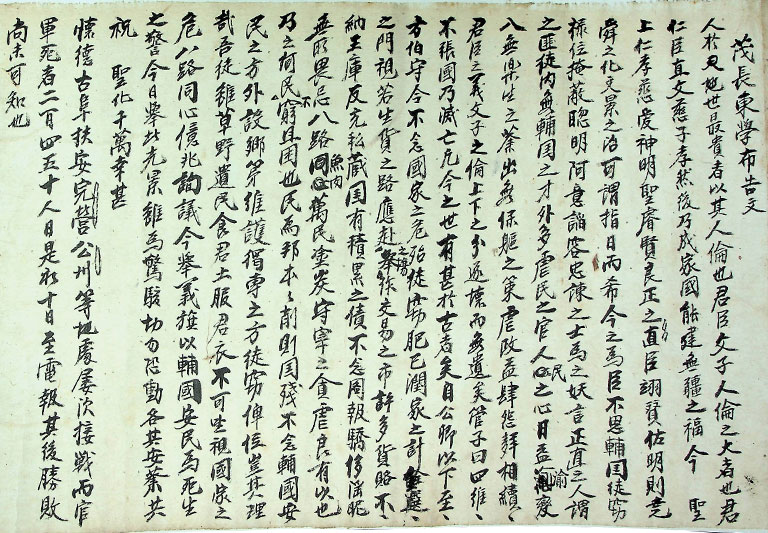 茂長東學布告文
人於天地世最貴者以其人倫也君臣父子人倫之大者也君
仁臣直父慈子孝然後乃成家國能逮無疆之福今 聖
上仁孝慈愛神明聖睿賢良正之直臣翊贊佐明則堯
舜之化文景之治可謂指日而希今之為臣不思輔国徒窃
祿位掩蔽聰明阿意諂容忠諫之士為之妖言正直之人謂
之匪徒内無輔国之才外多虐民之官人民之心日益渝變
入無樂生之業出無保軀之策虐政益肆怨聲相續〻
君臣之義父子之倫上下之分遂壞而無遺矣管子曰四維〻
不張國乃滅亡方今之世有甚於古者矣自公卿以下至〻
方伯守令不念國家之危殆徒窃肥己潤家之計銓選〻
之門視若生貨之路應赴之場擧作交易之市許多貨賂不〻
納王庫反充私藏国有積累之債不念圖報驕侈淫昵
無所畏忌八路魚肉萬民塗炭守宰之貪虐良有以也
乃之何民不窮且困也民為邦本〻削則国殘不念輔國安
民之方外設鄉第維護獨專之方徒窃俸位豈其理
哉吾徒雖草野遺民食君土服君衣不可坐視國家之
危八路同心億兆詢議今舉義旗以輔國安民為死生
之誓今日舉此光景雖為驚駭切勿恐動各共安業共
祝 聖化千萬幸甚
懷德古阜扶安完營公州等地處屢次接戰而官
軍死者二百四五十人日是初十日至電報其後勝敗
尚未可知也